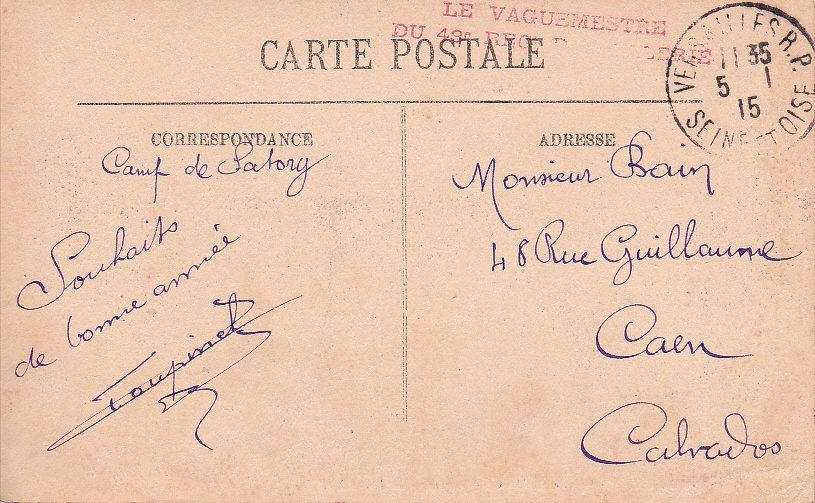 LE VAGUEMESTRE
DU 43e
CARTE POSTALE
VERSAILLES R.P.
11 35
5 1
15
SEINE ET OISE
CORRESPONDANCE
Camp de Satory
Souhaits
de bonne année
Toupinet
ADRESSE
Monsieur Bain
48 Rue Guillaume
Caen
Calvados